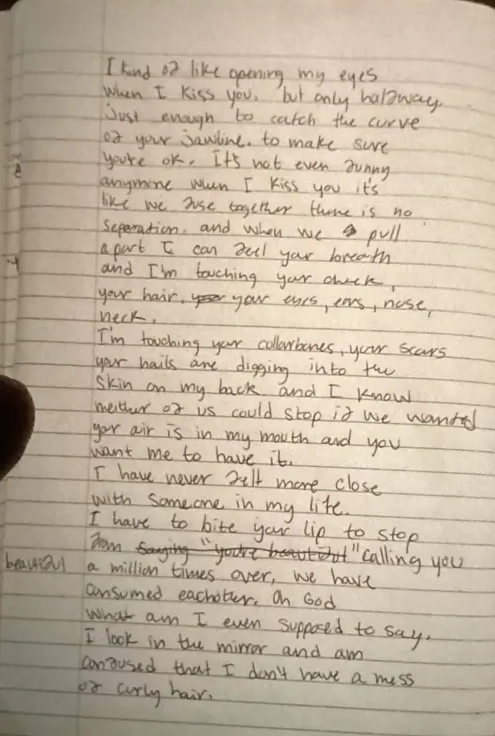 I kind of like opening my eyes
when I kiss you, but only halfway.
Just enough to catch the curve
of your jawline. to make sure
you're ok. It's not even funny
anymore when I kiss you it's
like we fuse together there is no
seperation. and when we pull
apart I can feel your breath
and I'm touching your cheek,
your hair, your your eyes, ears, nose,
neck.
I'm touching your collarbones, your scars
your nails are digging into the
skin on my back and I know
neither of us could stop if we wanted
your air is in my mouth and you
want me to have it.
I have never felt more close
with someone in my life.
I have to bite your lip to stop
from saying "you're beautiful" calling you
beautiful a million times over, we have
consumed eachother. Oh God
what am I even supposed to say.
I look in the mirror and am
confused that I don't have a mess
of curly hair.